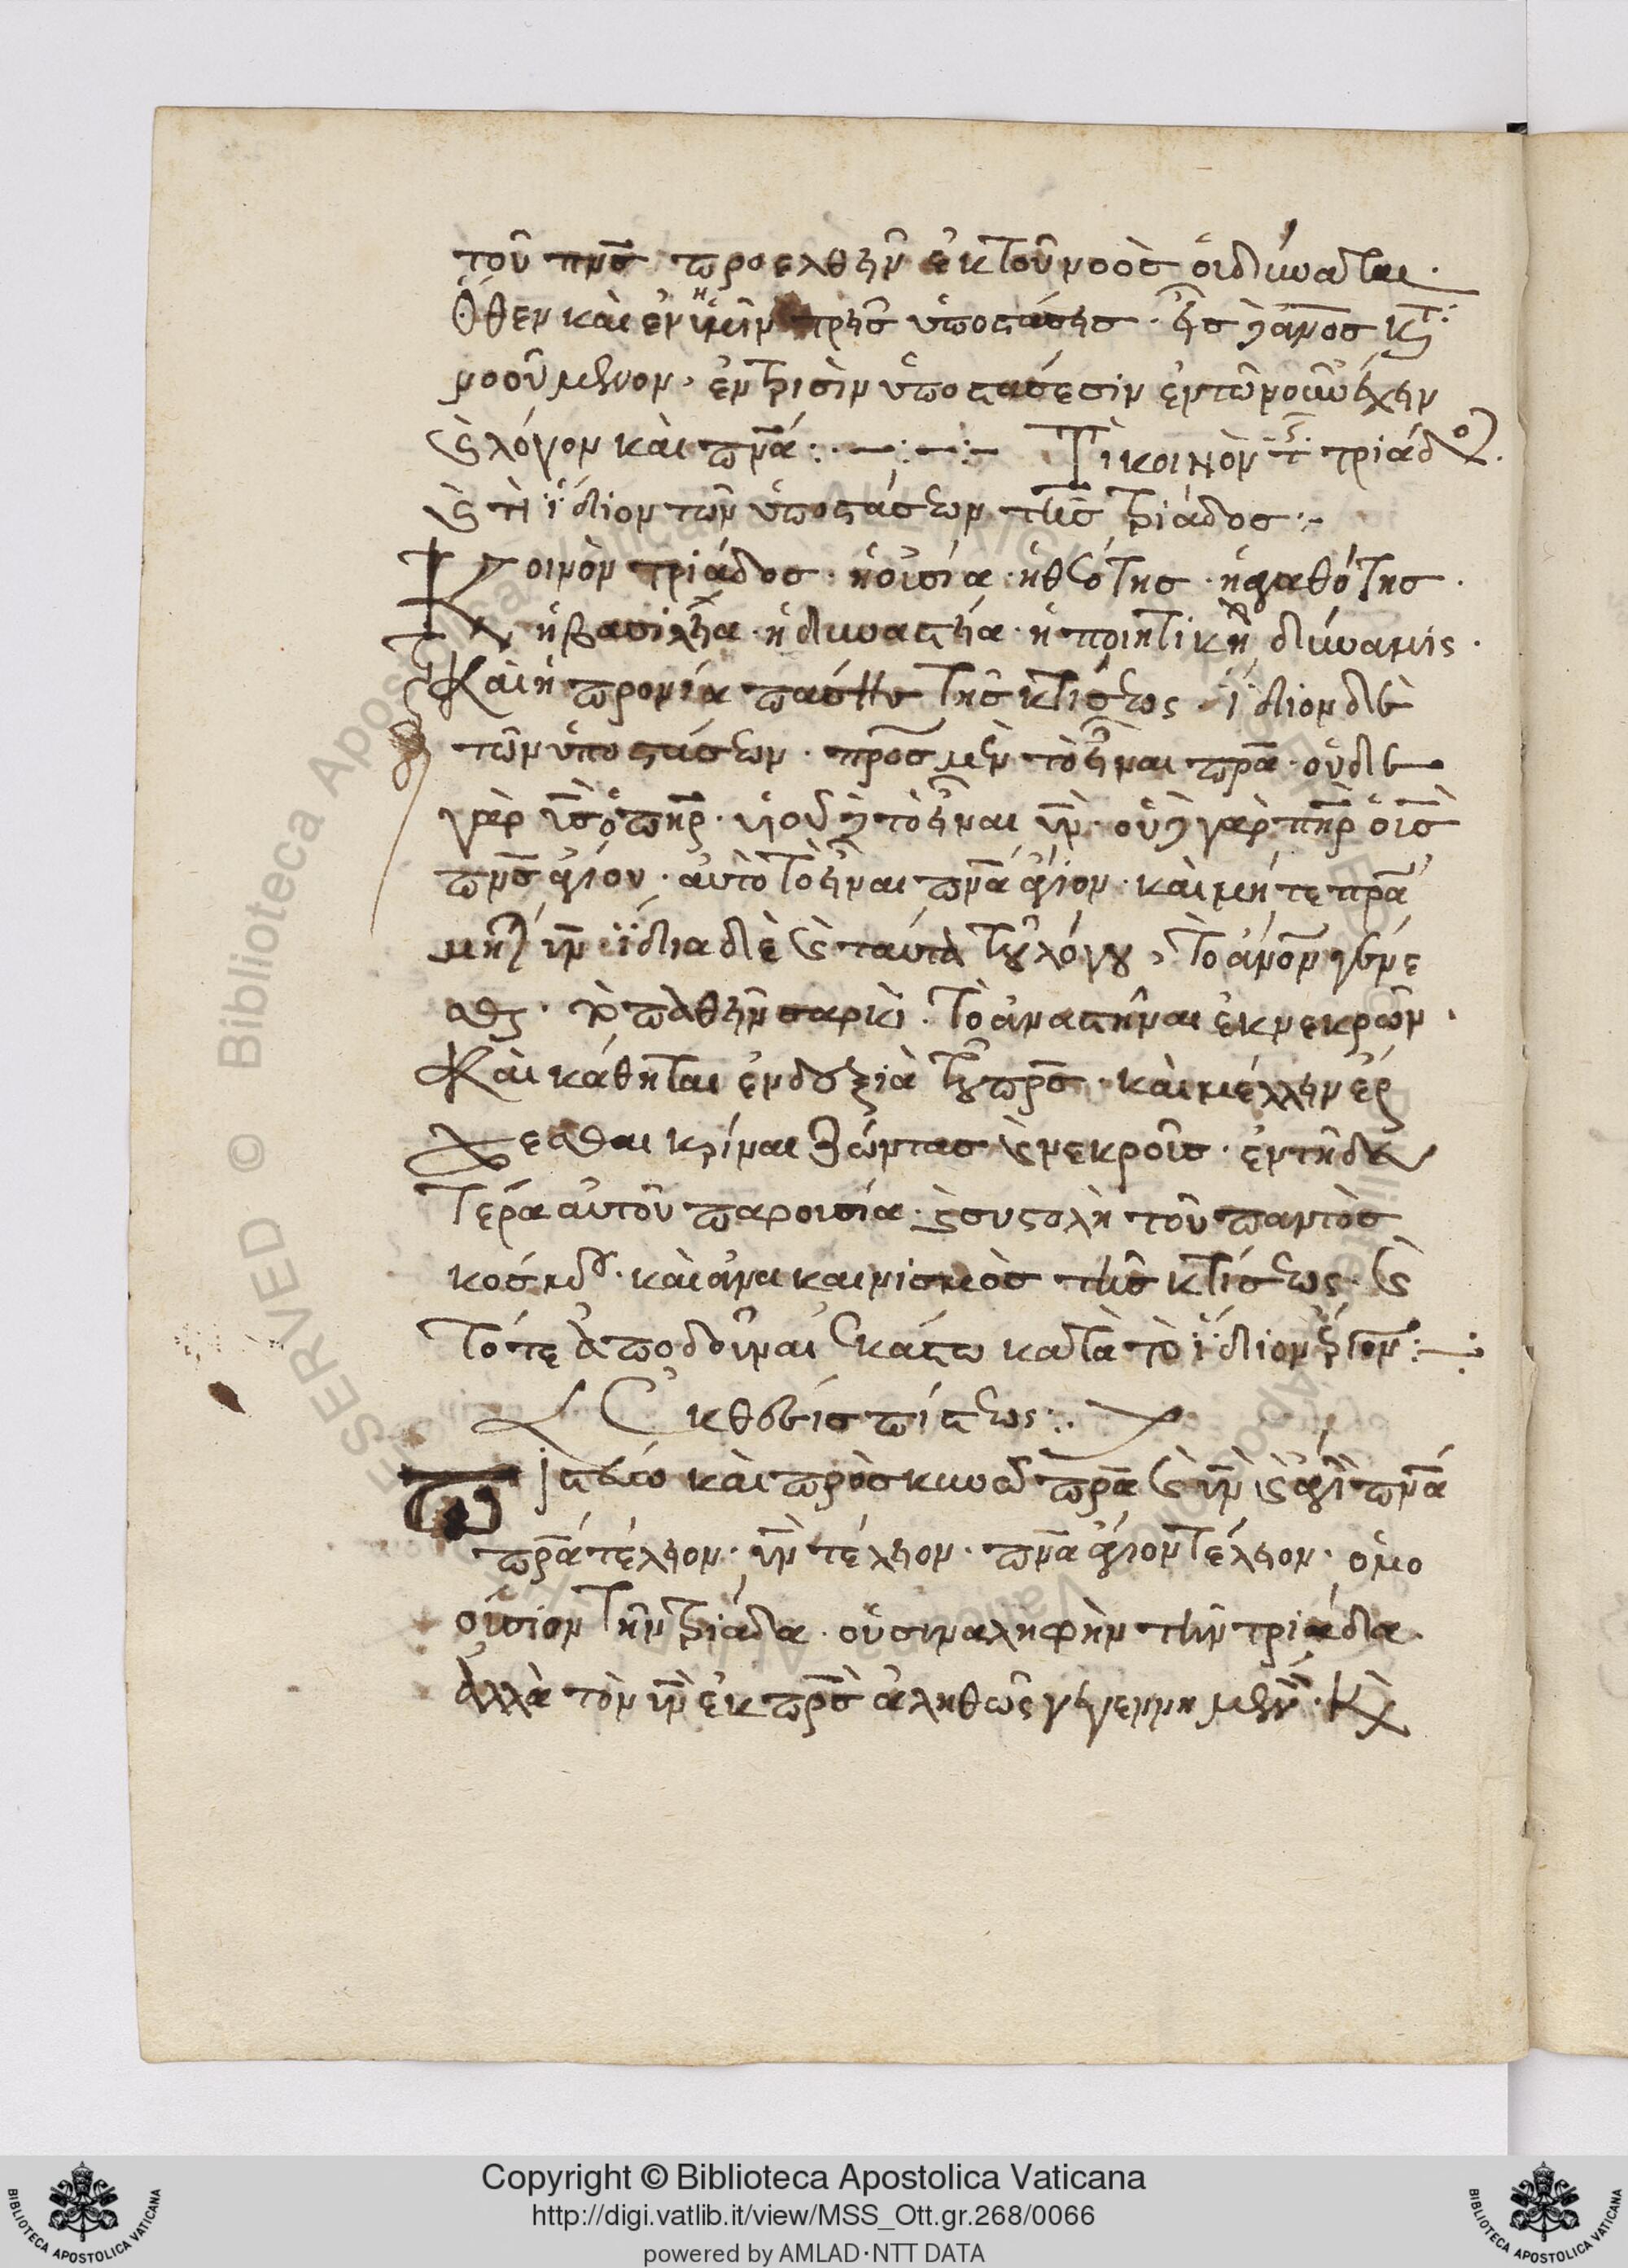 τοῦ πνς προελθεῖν ἐκ τοῦ νοὸς οὐ δύναται.
Ὅθεν καὶ ἐν ἡμῖν τρεῖς ὑποστάσεις. εἷς
νοούμενον, ἐν τρισὶν ὑποστάσεσιν ἐν τῶ νοῶ ἔχειν
καὶ λόγον καὶ πνα:. Τί κοινὸν τ τριάδο.
καὶ τί ἴδιον τῶν ὑποστάσεων τῆς τριάδος:
Κοινὸν τριάδος. ἡ οὐσία. ἡ θεότης. ἡ ἀγαθότης.
ἡ βασιλεία. ἡ δυναστεία. ἡ ποιητικὴ δύναμις.
Καὶ ἡ προνοία πάσης τῆς κτίσεως. ἴδιον δὲ
τῶν ὑποστάσεων. πρς μὲν τὸ εἶναι πρα. οὐδὲ
γὰρ υς ὁ πηρ. υἱοῦ δὲ τὸ εἶναι υν. οὐ γὰρ πηρ ὁ υς
πνς ἁγίου. αὐτὸ τὸ εἶναι πνα ἅγιον. καὶ μήτε πρα
μήτε υν ἴδια δὲ καὶ ταῦτα τοῦ λόγου, τὸ γενέ
σθαι. τὸ παθεῖν σαρκὶ. τὸ ἀναστῆναι ἐκ νεκρῶν.
Καὶ κάθηται ἐν δεξιὰ τοῦ πρς. καὶ μέλλειν ἔρ
χεσθαι κρίναι ζώντας καὶ νεκροὺς. ἐν τῇ δευ
τέρα αὐτοῦ παρουσία. τοῦ παντὸς
κόσμου. καὶ ἀνακαινισμὸς τῆς κτίσεως. καὶ
τότε ἀποδοῦναι ἑκάστω κατὰ τὸ ἴδιον ἔργον:
Ἔκθεσις πίστεως:.
Πιστεύω καὶ προσκυνῶ πρα καὶ υν καὶ ἅγι πνα
πρα τέλειον. υν τέλειον. πνα ἅγιον τέλειον. ὁμο
ούσιον τὴν τριάδα. οὐ συναλειφὴν τὴν τριάδα.
ἀλλὰ τὸν υν ἐκ πρς ἀληθῶς γεγεννημένον. καὶ
Copyright © Biblioteca Apostolica Vaticana
http://digi.vatlib.it/view/MSS_Ott.gr.268/0066
powered by AMLAD·NTT DATA